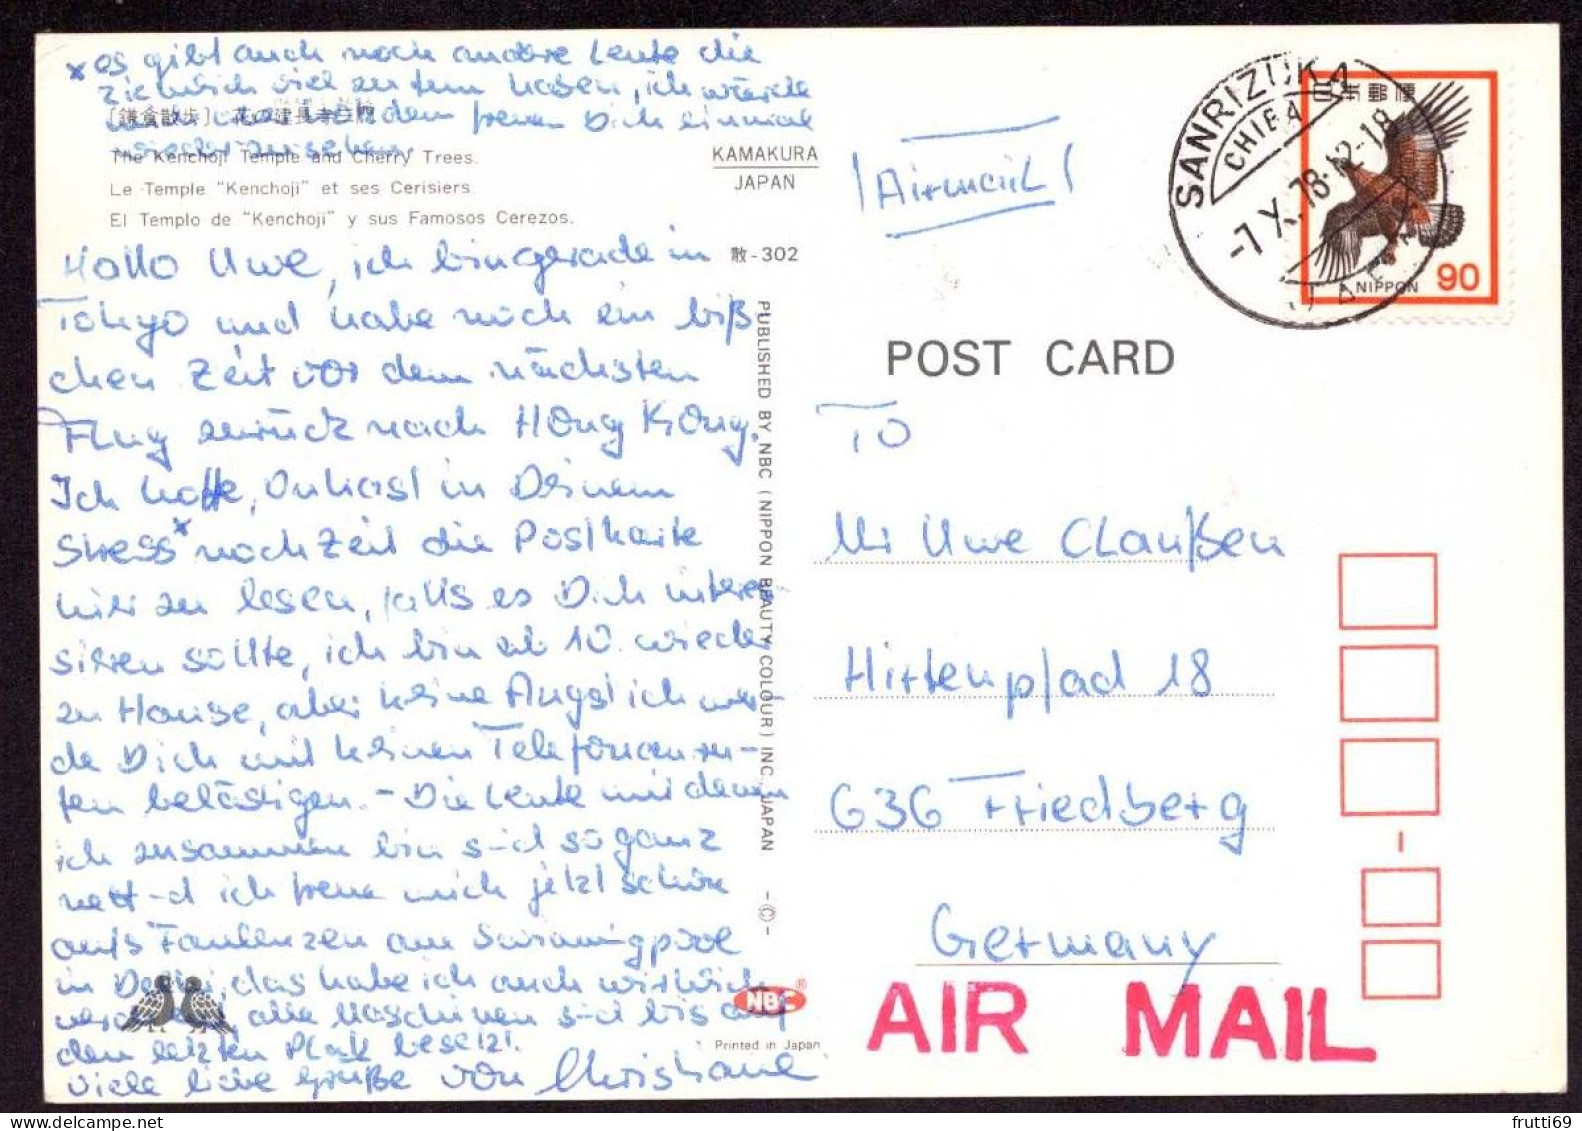 * es gibt auch noch andere Leute die
ziemlich viel zu tun haben, ich würde
dem freuen Dich einmal
wiederzusehen.
[鎌倉散歩] 花の建長寺三門
The Kenchoji Temple and Cherry Trees.
Le Temple "Kenchoji" et ses Cerisiers.
El Templo de "Kenchoji" y sus Famosos Cerezos.
KAMAKURA
JAPAN
散-302
Hallo Uwe, ich bin gerade in
Tokyo und habe noch ein biß-
chen Zeit vor dem nächsten
Flug zurück nach Hong Kong.
Ich hoffe, Du hast in Deinem
Stress* noch Zeit die Postkarte
hier zu lesen, falls es Dich interes-
sieren sollte, ich bin ab 10. wieder
zu Hause, aber keine Angst ich wer-
de Dich mit keinen Telefonanru-
fen belästigen. - Die Leute mit denen
ich zusammen bin sind so ganz
nett und ich freue mich jetzt schon
aufs Faulenzen am Swimmingpool
in Delhi, das habe ich auch wirklich
alle Maschinen sind bis auf
den letzten Platz besetzt.
Viele liebe Grüße von Christiane
PUBLISHED BY NBC (NIPPON BEAUTY COLOUR) INC., JAPAN -©-
NBC®
Printed in Japan
Airmail
SANRIZUKA
CHIBA
-7.X.78.12-18
JAPAN
日本郵便
NIPPON
90
POST CARD
To
Mr Uwe Claußen
Hirtenpfad 18
636 Friedberg
Germany
AIR MAIL
frutti69